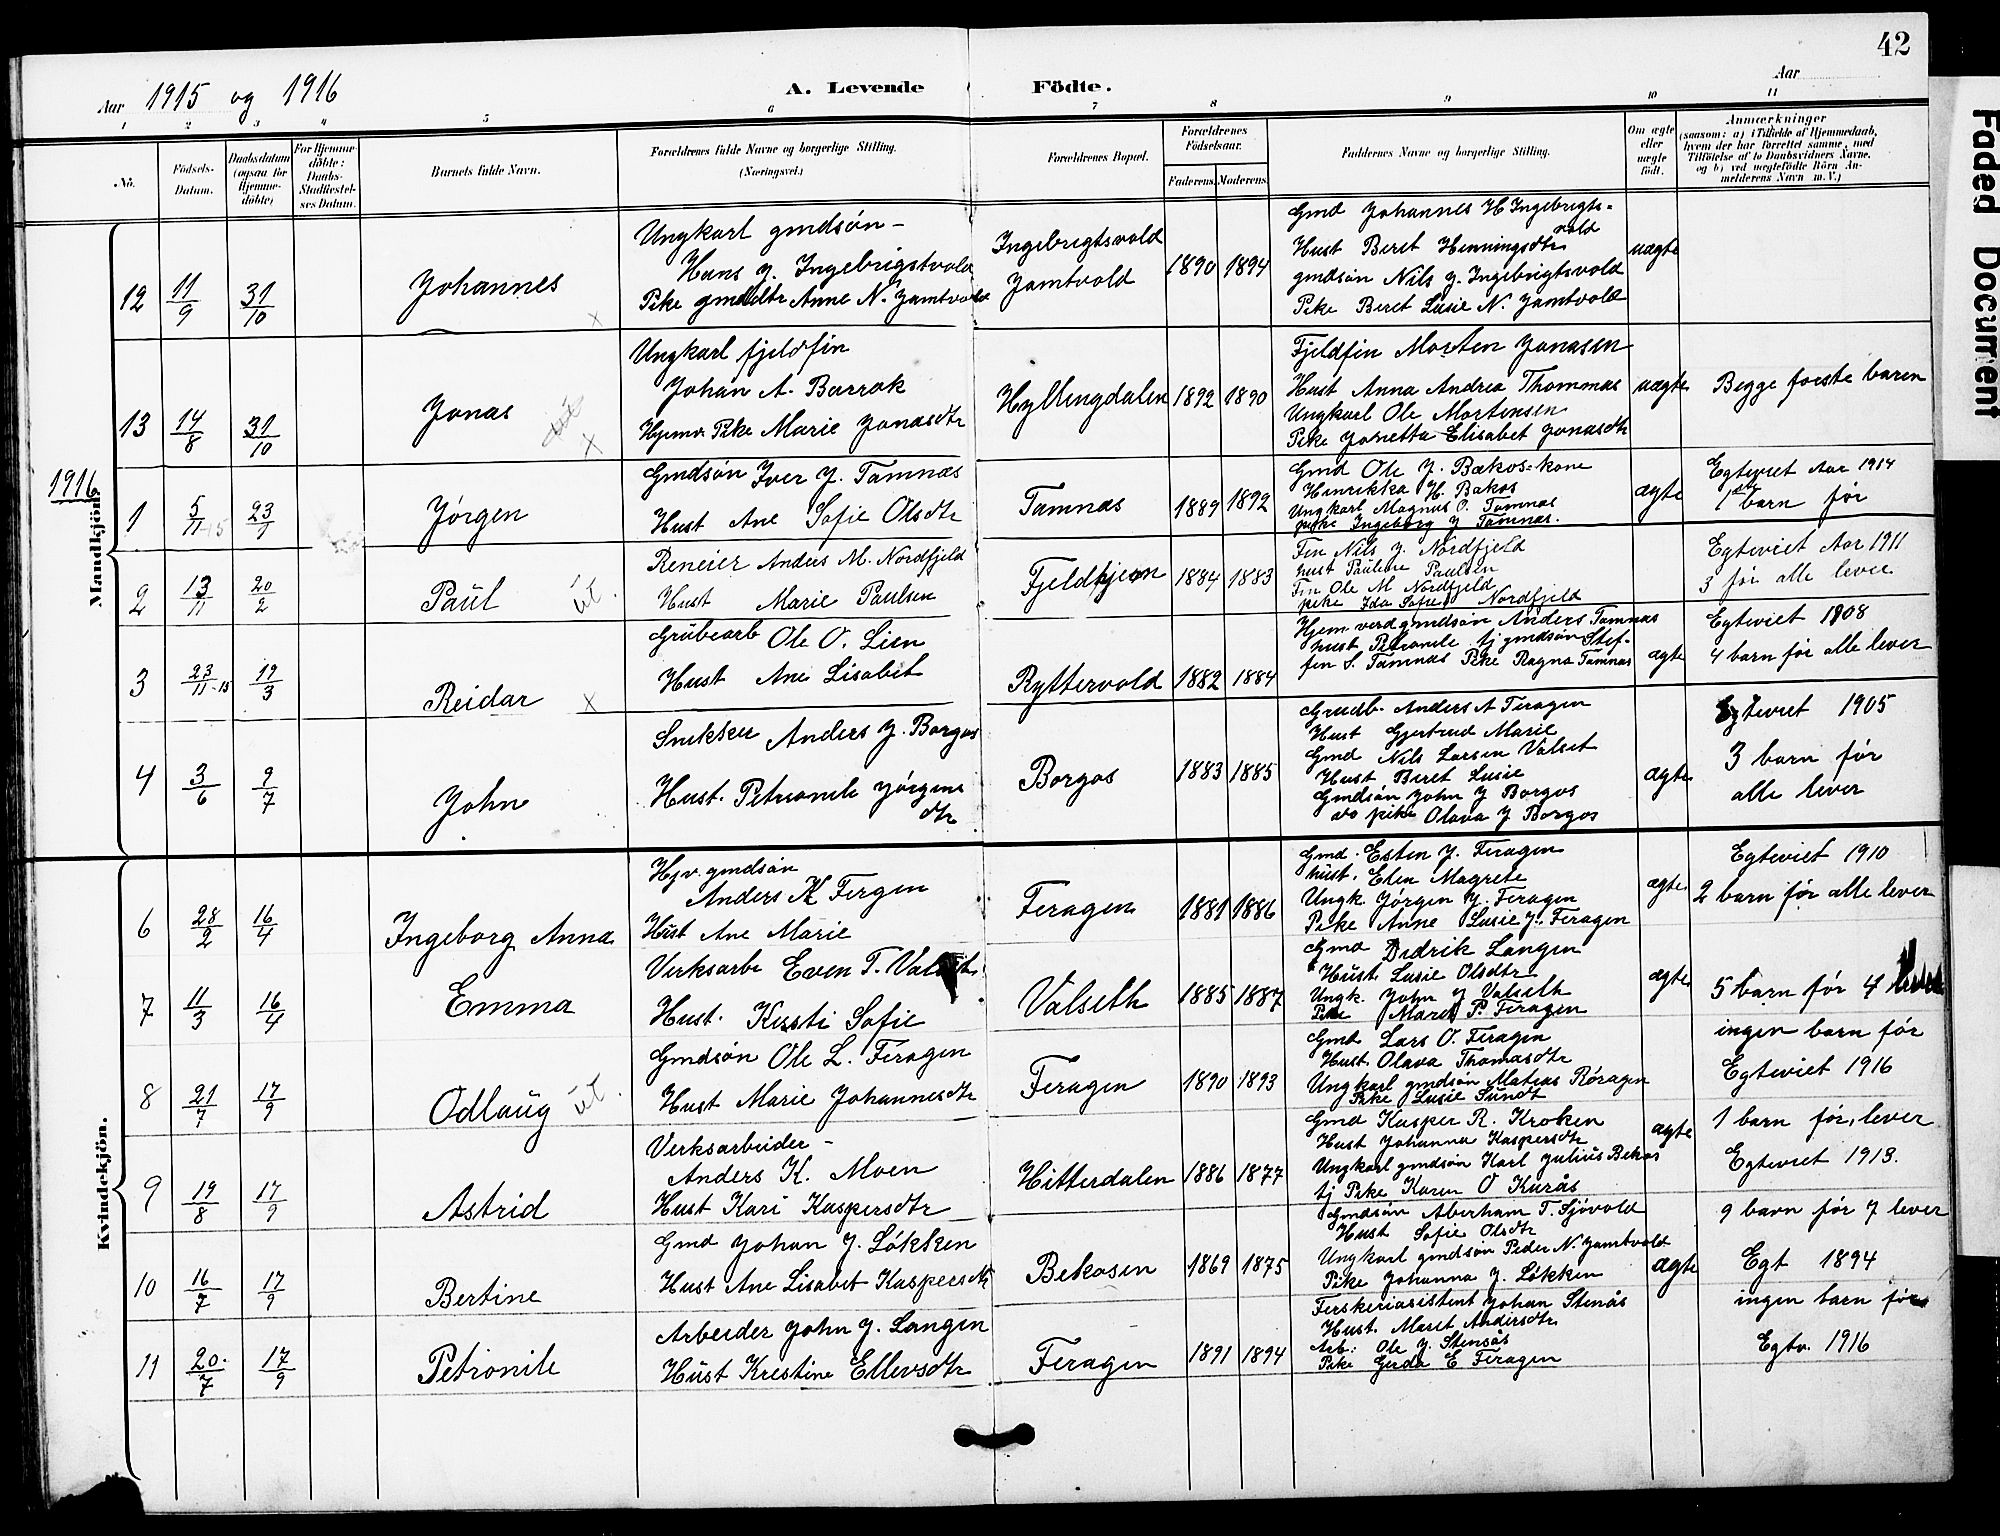 42
Aar 1915 og 1916
A. Levende Födte.
Aar
1 2 3 4 5 6 7 8 9 10 11
No.
Födsels-Datum.
Daabsdatum (ogsaa for Hjemme-döbte)
For Hjemme-döbte: Daabs-Stadfæstel-ses Datum.
Barnets fulde Navn.
Forældrenes fulde Navne og borgerlige Stilling.
(Næringsvei.)
Forældrenes Bopæl.
Forældrenes Födselsaar.
Faderens. Moderens.
Faddernes Navne og borgerlige Stilling.
Om ægte eller uægte födt.
Anmærkninger
(saasom: a) i Tilfælde af Hjemmedaab,
hvem der har forrettet samme, med
Tilföielse af to Daabsvidners Navne,
og b) ved uægtefödte Börn An-
melderens Navn m. V.)
Mandkjön.
12 11/9 31/10 Johannes
Ungkarl gmdsøn -
Hans J. Ingebrigtsvold
Pike gmddtr Anne N. Jamtvold
Ingebrigtsvold
Jamtvold
1890 1894
Gmd Johannes H Ingebrigts=
vold
Hust Beret Henningsdtr
gmdsøn Nils J. Ingebrigtsvold
Pike Beret Lusie N. Jamtvold
uægte
13 14/8 31/10 Jonas
Ungkarl fjeldfin
Johan A. Barrok
Hjemv. Pike Marie Jonasdtr
Hyllingdalen 1892 1890
Fjeldfin Morten Jonasen
Hust Anna Andrea Thommas
Ungkarl Ole Mortensen
Pike Jonetta Elisabet Jonasdtr
uægte
Begge første baren
1916
1 5/11 15 23/1 Jørgen
Gmdsøn Iver J. Tamnæs
Hust Ane Sofie Olsdtr
Tamnæs 1889 1892
Gmd Ole J. Bækos=kone
Hinrikka H. Bakos
Ungkarl Magnus O. Tamnas
pike Ingeborg J Tamnas.
ægte
Egteviet Aar 1914
1 barn før
2 13/11 20/2 Paul ut.
Reneier Anders M. Nordfjeld
Hust Marie Paulsen
Fjeldkjern 1884 1883
Fin Nils J. Nordfjeld
hust Pauline Paulsen
Fin Ole M Nordfjeld
pike Ida Sofie Nordfjeld
Egteviet Aar 1911
3 før alle lever
3 23/11-15 19/3 Reidar x
Grubearb Ole O. Lien
Hust Ane Lisabet
Ryttervold 1882 1884
Hjem. verd gmdsøn Anders Tamnas
hust Petronele tj gmdsøn Stef-
fen S. Tamnas Pike Ragna Tamnas
ægte
Egteviet 1908
4 barn før alle lever
4 3/6 9/7 John
Snekker Anders J. Borgos
Hust. Petronele Jörgens
dtr
Borgos 1883 1885
Grudb. Anders A Feragen
Hust Gjertrud Marie
Gmd Nils Larsen Valset
Hust Beret Lusie
Gmdsøn John J Borgos
do pike Olava J Borgos
ægte
Egteviet 1905
3 barn før
alle lever
Kvindekjön.
6 28/2 16/4 Ingeborg Anna
Hjv. gmdsøn
Anders K Fergen
Hust Ane Marie
Feragen 1881 1886
Gmd. Esten J. Feragen
hust. Elen Magrete
Ungk. Jørgen J. Feragen
Pike Anne Lusie J. Feragen
ægte.
Egteviet 1910
2 barn før alle lever
7 11/3 16/4 Emma
Verksarb Even T. Valseth
Hust. Kersti Sofie
Valseth 1885 1887
Gmd Didrik Langen
Hust Lusie Olsdtr
Ungk. John J Valseth
Pike Maret P. Feragen
ægte
5 barn før 4 lever
8 21/7 17/9 Odlaug ut.
Gmdsøn Ole L. Feragen
Hust Marie Johannesdtr
Feragen 1890 1893
Gmd Lars O. Feragen
Hust. Olava Thomasdtr
Ungkarl gmdsøn Matias Röragen
Pike Lusie Sundt
ingen barn før
Egteviet 1916
9 19/8 17/9 Astrid
Verksarbeider -
Anders K. Moen
Hust Kari Kaspersdtr
Hitterdalen 1886 1877
Gmd Kasper R. Kroken
Hust Johanna Kaspersdtr
Ungkarl gmdsøn Karl Julius Bekos
tj Pike Karen O Kurås
ægte
1 barn før, lever
Egteviet 1913.
10 16/7 17/9 Bertine
Gmd Johan J. Løkken
Hust Ane Lisabet Kaspersdtr
Bekosen 1869 1875
Gmdsøn Aberham T. Sjøvold
Hust Sofie Olsdtr
Ungkarl gmdsøn Peder N. Jamtvold
Pike Johanna J. Løkken
ægte
9 barn før 7 lever
Egt 1894
11 20/7 17/9 Petronile
Arbeider John J. Langen
Hust Kristine Ellevsdtr
Feragen 1891 1894
Ferskeriasistent Johan Stenås
Hust. Maret Andersdtr
Arb: Ole J. Stensås
Pike Gerda E Feragen
ingen barn før
Egtv. 1916
Faded Document